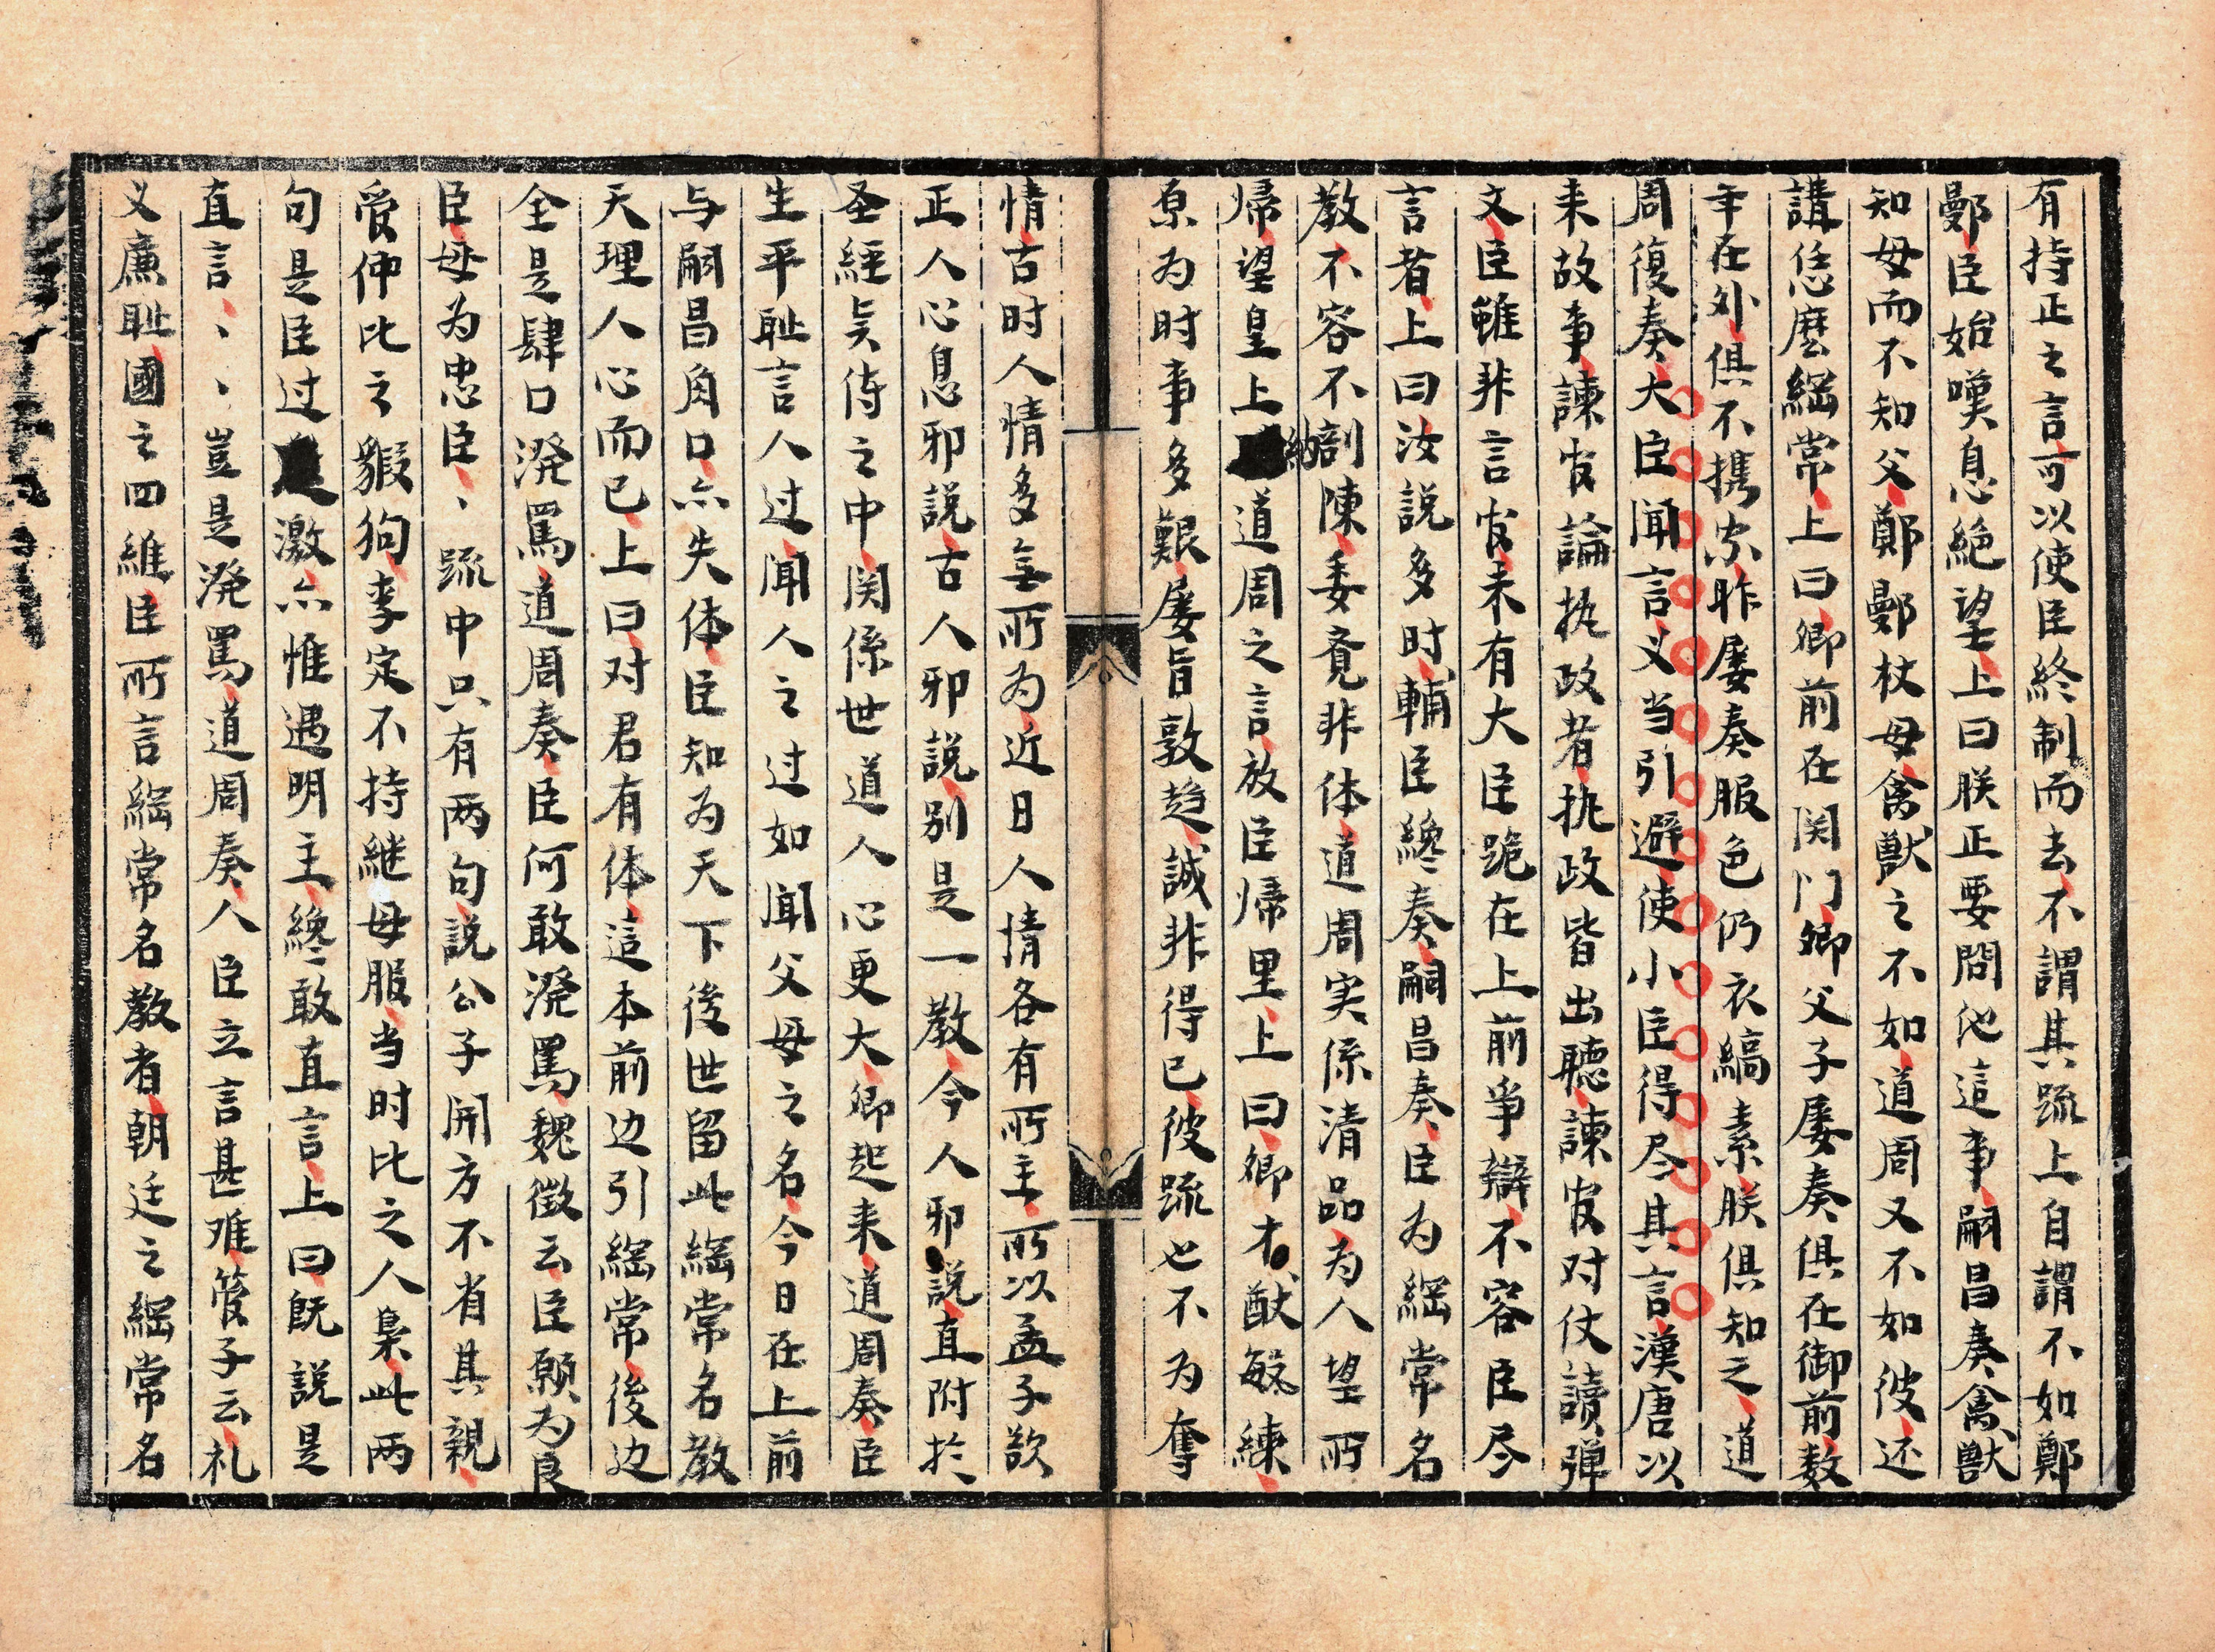 有持正之言可以使臣終制而去不謂其疏上自謂不如鄭
鄤臣始嘆息絕望上曰朕正要問他這事嗣昌奏禽獸
知母而不知父鄭鄤杖母禽獸之不如道周又不如彼还
講恁麽綱常上曰卿前在関门卿父子屡奏俱在御前数
年在外俱不携家昨屡奏服色仍衣縞素朕俱知之道
周復奏大臣聞言义当引避使小臣得尽其言漢唐以
来故事諫官論执政者执政皆出聽諫官对仗讀弹
文臣雖非言官未有大臣跪在上前争辯不容臣尽
言者上曰汝説多时輔臣纔奏嗣昌奏臣为綱常名
教不容不剖陳委竟非体道周实係清品为人望所
帰望皇上納道周之言放臣帰里上曰卿才猷敏練
京为时事多艱屡旨敦趋誠非得已彼疏也不为奪
情古时人情多無所为近日人情各有所主所以孟子欲
正人心息邪説古人邪説别是一教今人邪説直附於
圣經矣侍之中関係世道人心更大卿起来道周奏臣
生平耻言人过闻人之过如闻父母之名今日在上前
与嗣昌角口亦失体臣知为天下後世留此綱常名教
天理人心而已上曰对君有体這本前边引綱常後边
全是肆口溌罵道周奏臣何敢溌罵魏徴云臣願为良
臣毋为忠臣、疏中只有两句説公子開方不省其親、
爰伸比之豭狗李定不持継母服当时比之人梟此两
句是臣过激亦惟遇明主纔敢直言上曰既説是
直言、、、豈是溌罵道周奏人臣立言甚难管子云礼
义廉耻國之四維臣所言綱常名教者朝廷之綱常名